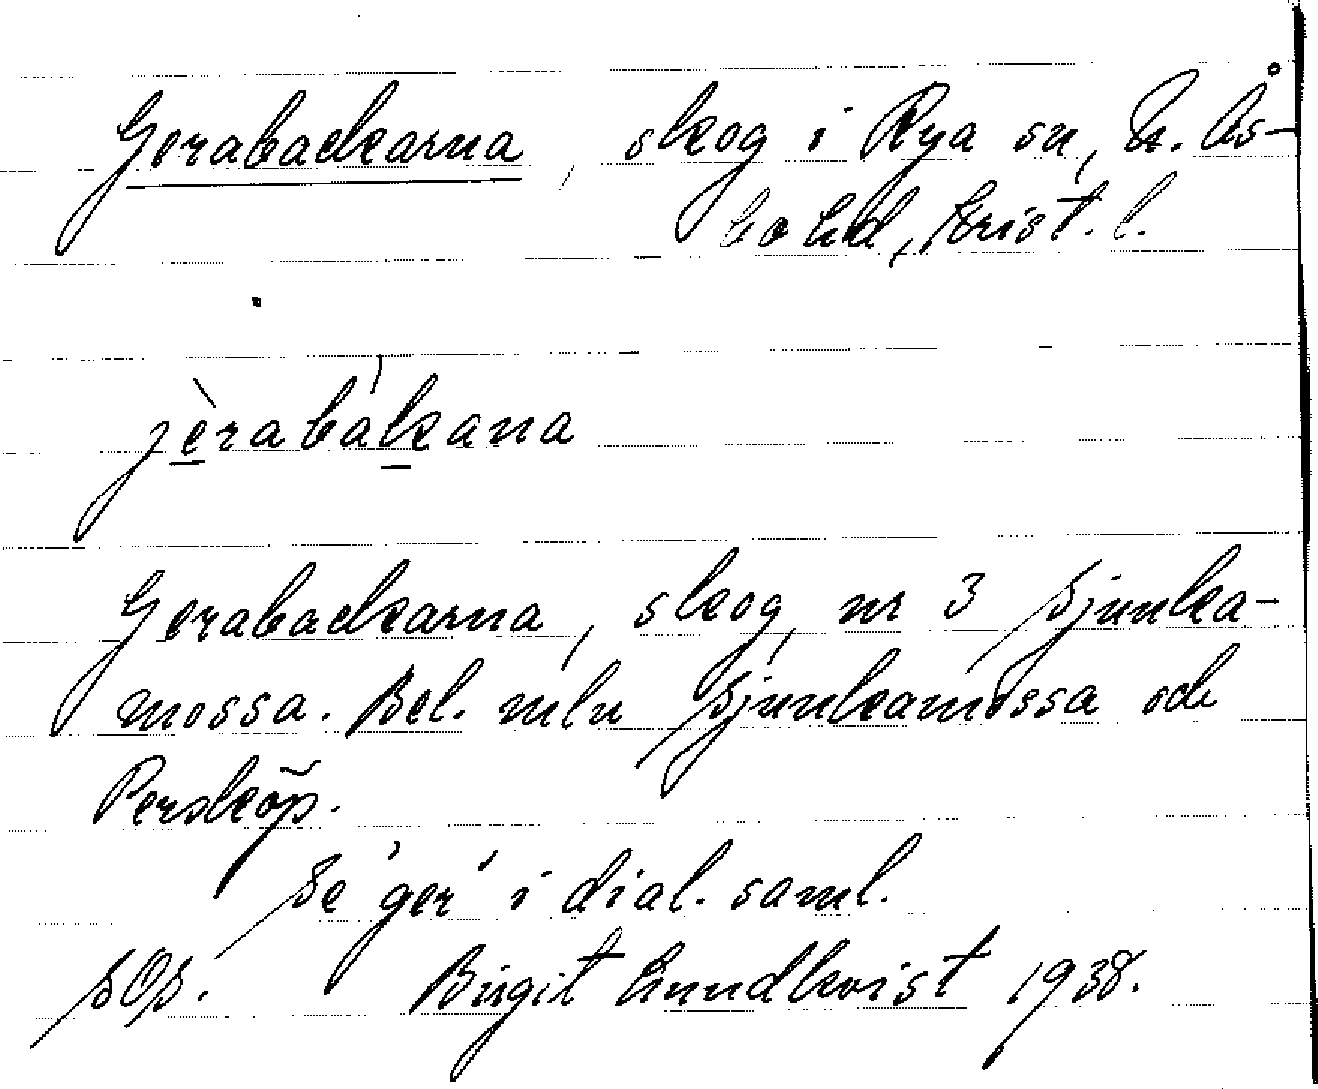 Gerabackarna, skog i Rya sn, N. Ås-
bo hd, Krist. l.
jèrabákana
Gerabackarna, skog, nr 3 Sjunka-
mossa. Bel. mln Sjunkamossa och
Persköp.
Se 'ger' i dial. saml.
SOp. Birgit Lundkvist 1938.